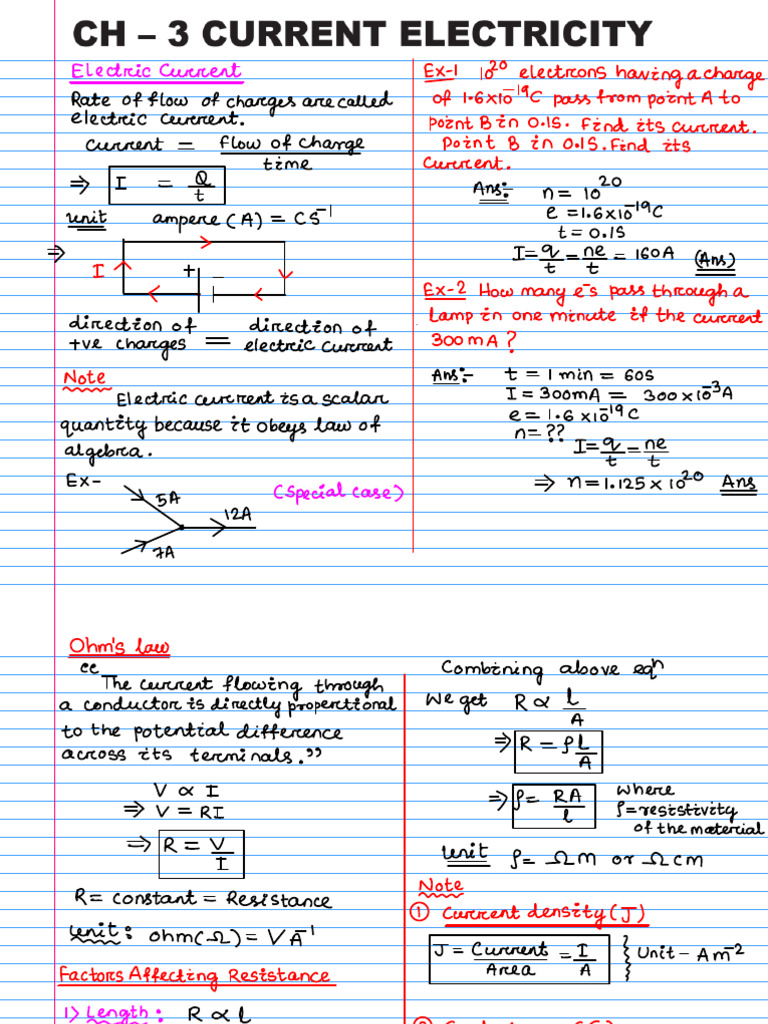 CH – 3 CURRENT ELECTRICITY
Electric Current
Rate of flow of charges are called
electric current.
Current = flow of charge
time
⇒ I = Q
t
unit ampere (A) = CS⁻¹
⇒
I + –
direction of direction of
+ve charges = electric current
Note
Electric current is a scalar
quantity because it obeys law of
algebra.
Ex- (special case)
5A
12A
7A
Ex-1 10²⁰ electrons having a charge
of 1.6×10⁻¹⁹C pass from point A to
point B in 0.1S. Find its current.
Point B in 0.1S. Find its
current.
Ans:- n = 10²⁰
e = 1.6×10⁻¹⁹C
t = 0.1S
I = q/t = ne/t = 160A (Ans)
Ex-2 How many e⁻s pass through a
Lamp in one minute if the current
300mA?
Ans:- t = 1 min = 60S
I = 300mA = 300×10⁻³A
e = 1.6×10⁻¹⁹C
n= ??
I = q/t = ne/t
⇒ n = 1.125×10²⁰ Ans
Ohm's law
“
The current flowing through
a conductor is directly proportional
to the potential difference
across its terminals.”
V ∝ I
⇒ V = RI
⇒ R = V
I
R = constant = Resistance
unit: ohm(Ω) = VA⁻¹
Factors Affecting Resistance
1) Length: R ∝ l
Combining above eqⁿ
We get R ∝ l
A
⇒ R = ρL
A
⇒ ρ = RA
l
where
ρ=resistivity
of the material
Unit ρ = Ωm or Ωcm
Note
① Current density (J)
J = Current = I
Area A
Unit - Am⁻²